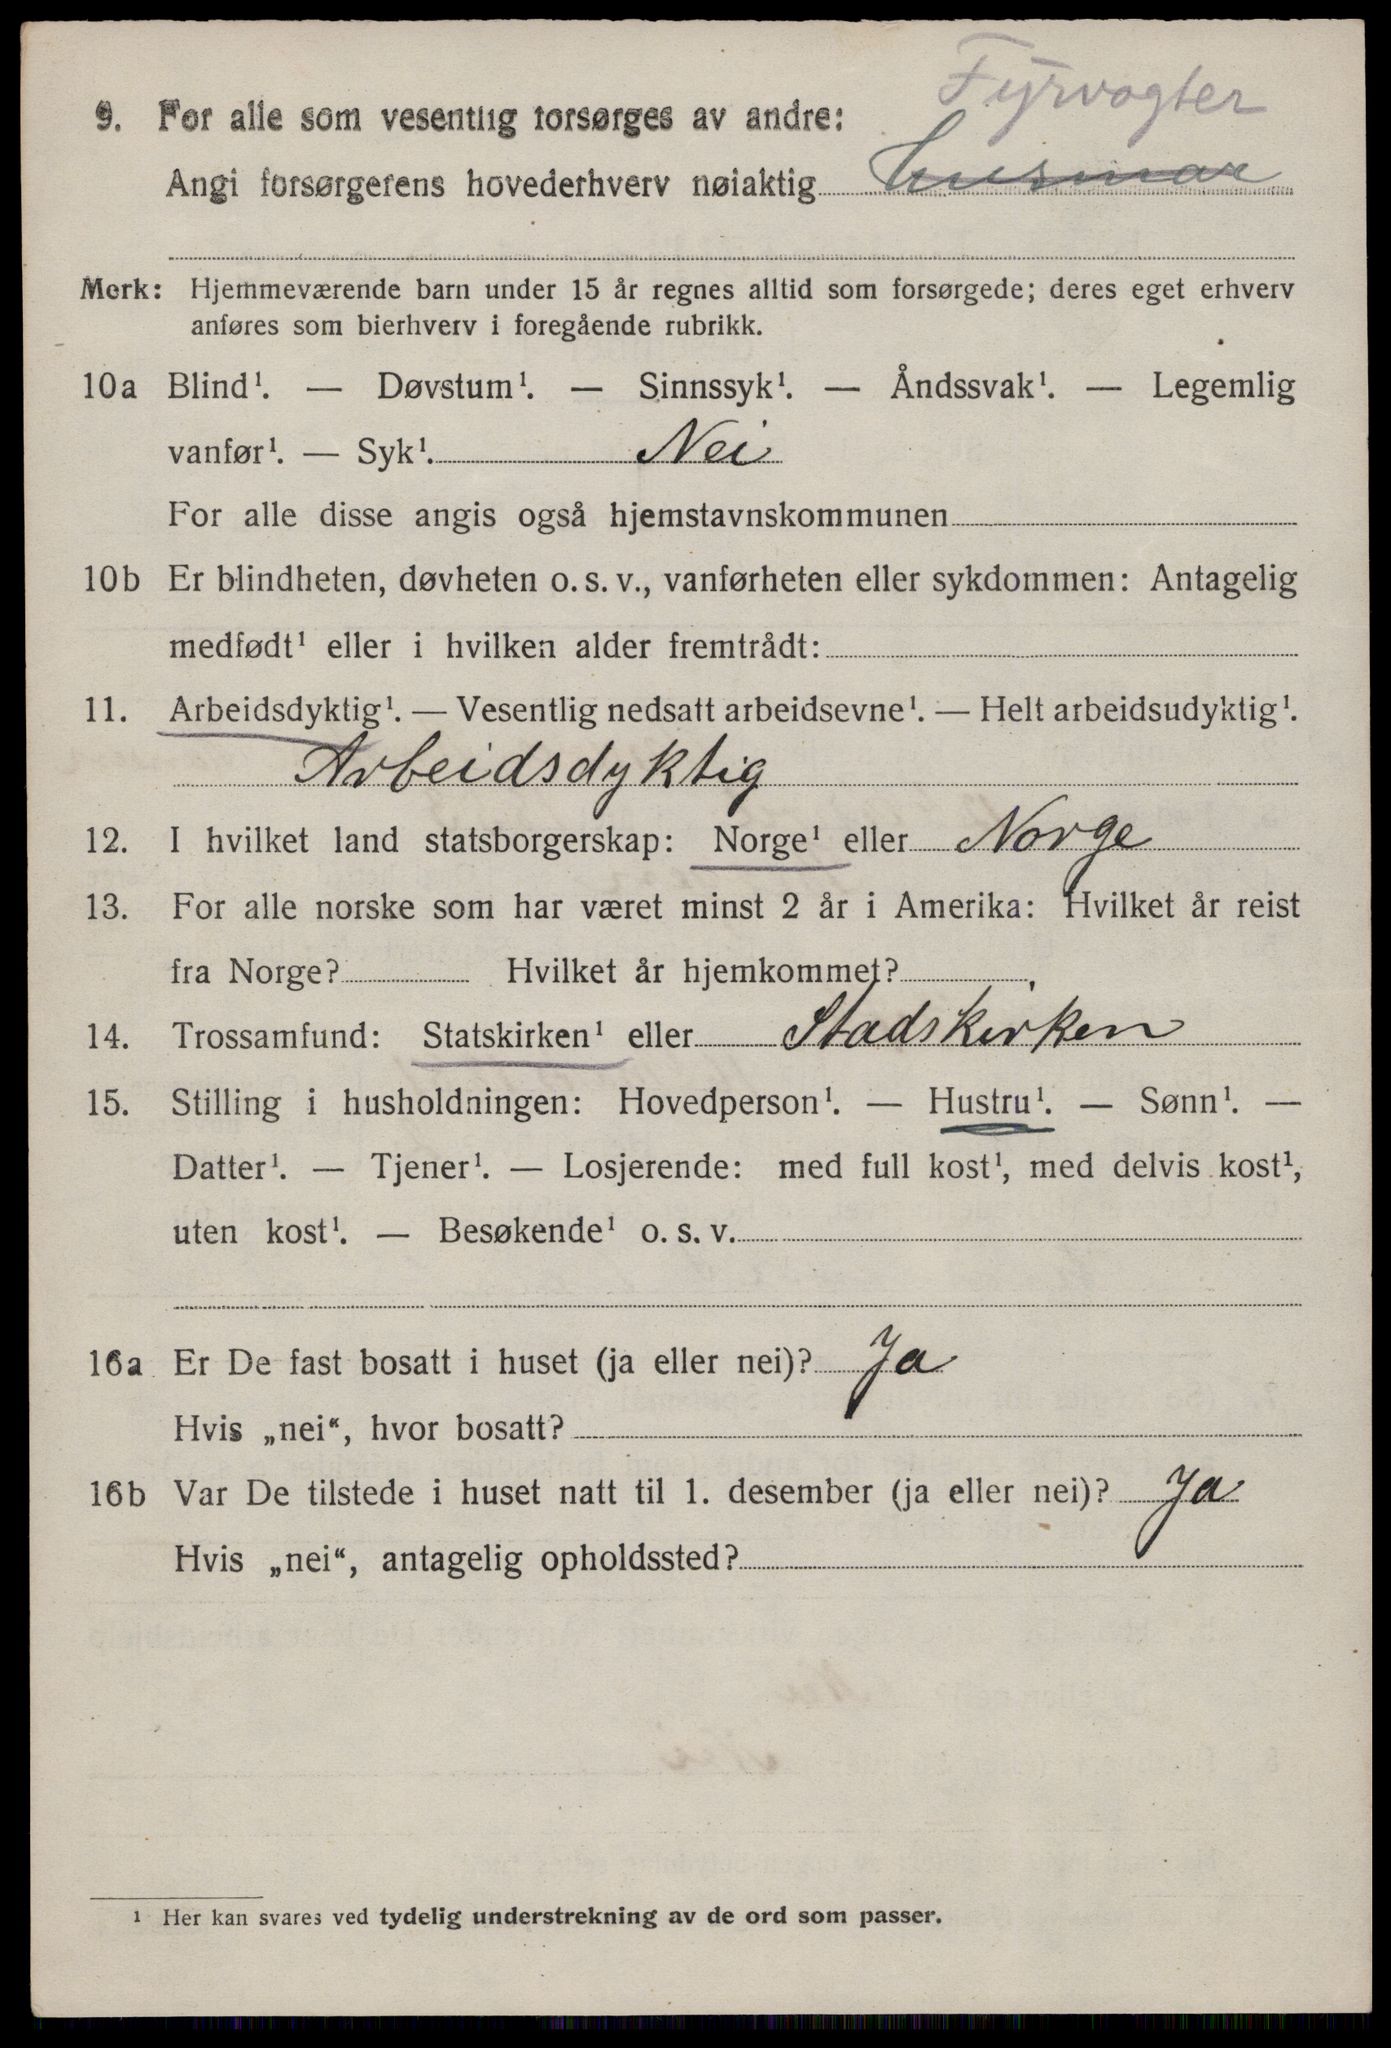 Fyrvogter
9. For alle som vesentlig forsørges av andre:
Angi forsørgerens hovederhverv nøiaktig
Merk: Hjemmeværende barn under 15 år regnes alltid som forsørgede; deres eget erhverv
anføres som bierhverv i foregående rubrikk.
10a Blind¹. — Døvstum¹. — Sinnssyk¹. — Åndssvak¹. — Legemlig
vanfør¹. — Syk¹. Nei
For alle disse angis også hjemstavnskommunen
10b Er blindheten, døvheten o. s. v., vanførheten eller sykdommen: Antagelig
medfødt¹ eller i hvilken alder fremtrådt:
11. Arbeidsdyktig¹. — Vesentlig nedsatt arbeidsevne¹. — Helt arbeidsudyktig¹.
Arbeidsdyktig
12. I hvilket land statsborgerskap: Norge¹ eller Norge
13. For alle norske som har været minst 2 år i Amerika: Hvilket år reist
fra Norge? Hvilket år hjemkommet?
14. Trossamfund: Statskirken¹ eller Stadskirken
15. Stilling i husholdningen: Hovedperson¹. — Hustru¹. — Sønn¹. —
Datter¹. — Tjener¹. — Losjerende: med full kost¹, med delvis kost¹,
uten kost¹. — Besøkende¹ o. s. v.
16a Er De fast bosatt i huset (ja eller nei)? Ja
Hvis „nei“, hvor bosatt?
16b Var De tilstede i huset natt til 1. desember (ja eller nei)? Ja
Hvis „nei“, antagelig opholdssted?
¹ Her kan svares ved tydelig understrekning av de ord som passer.